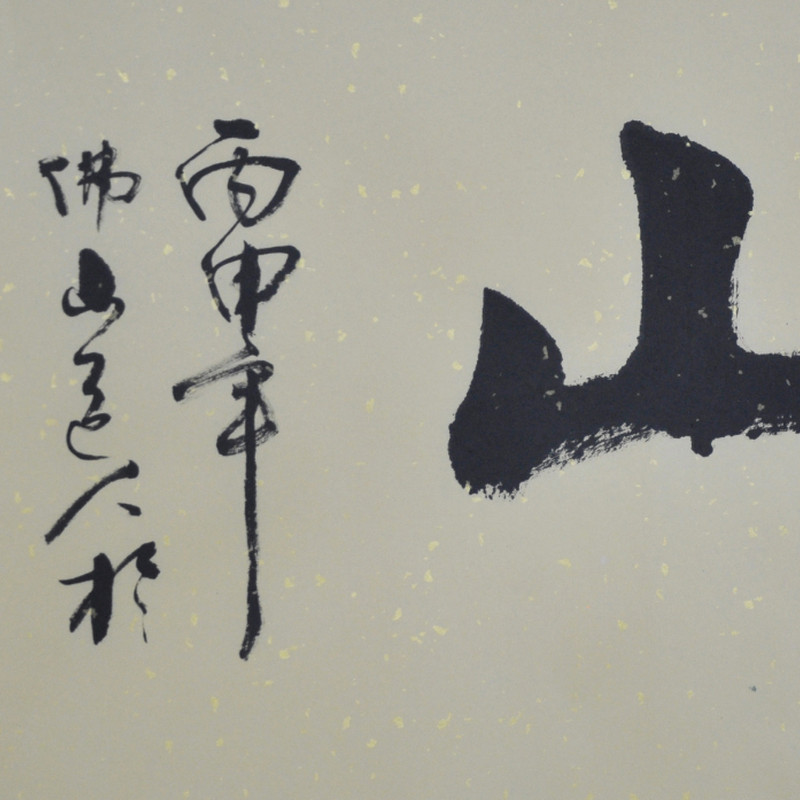 山
丙申年
佛山道人於